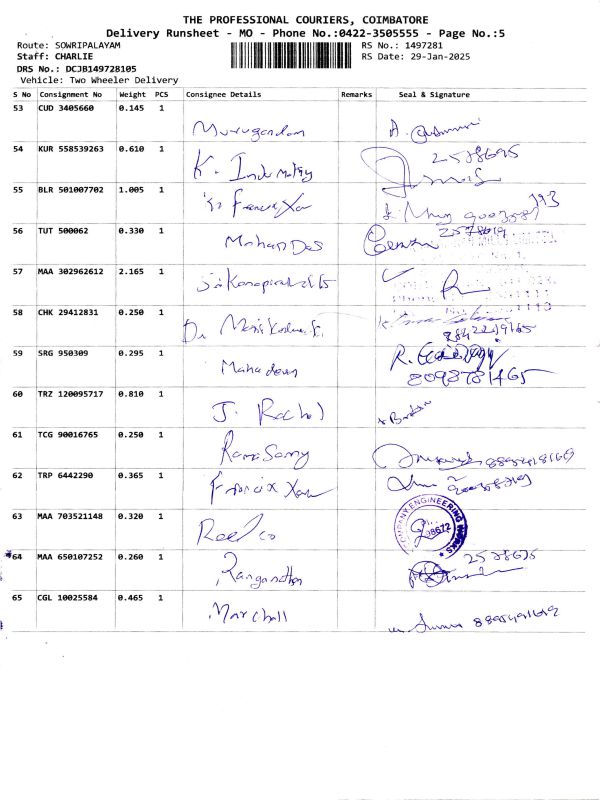 THE PROFESSIONAL COURIERS, COIMBATORE
Delivery Runsheet - MO - Phone No.:0422-3505555 - Page No.:5
Route: SOWRIPALAYAM RS No.: 1497281
Staff: CHARLIE RS Date: 29-Jan-2025
DRS No.: DCJB149728105
Vehicle: Two Wheeler Delivery
S No Consignment No Weight PCS Consignee Details Remarks Seal & Signature
53 CUD 3405660 0.145 1
Murugandam A.
54 KUR 558539263 0.610 1
K. Indumathy 2578695
55 BLR 501007702 1.005 1
Francis Xav
56 TUT 500062 0.330 1
Mohan Das 2578619
57 MAA 302962612 2.165 1
58 CHK 29412831 0.250 1
Dr
59 SRG 950309 0.295 1
Mahadevan R.
8098781465
60 TRZ 120095717 0.810 1
J. Rachel
61 TCG 90016765 0.250 1
RamaSamy
62 TRP 6442290 0.365 1
Francix Xav
63 MAA 703521148 0.320 1
Reed co ENGINEERING WORKS
64 MAA 650107252 0.260 1
Ranganathan
65 CGL 10025584 0.465 1
Marshall